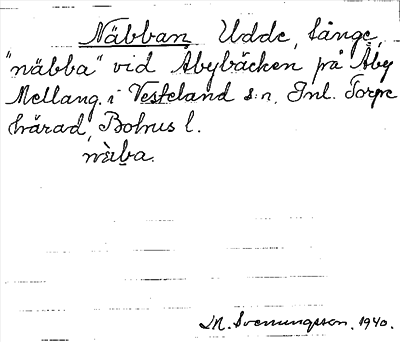 Näbban, Udde, långe,
"näbba" vid Åbybäcken på Åby
Mellang. i Vesteland s:n, Inl. Torpe
härad, Bohus l.
nὲiba.
M. Svenungsson. 1940.